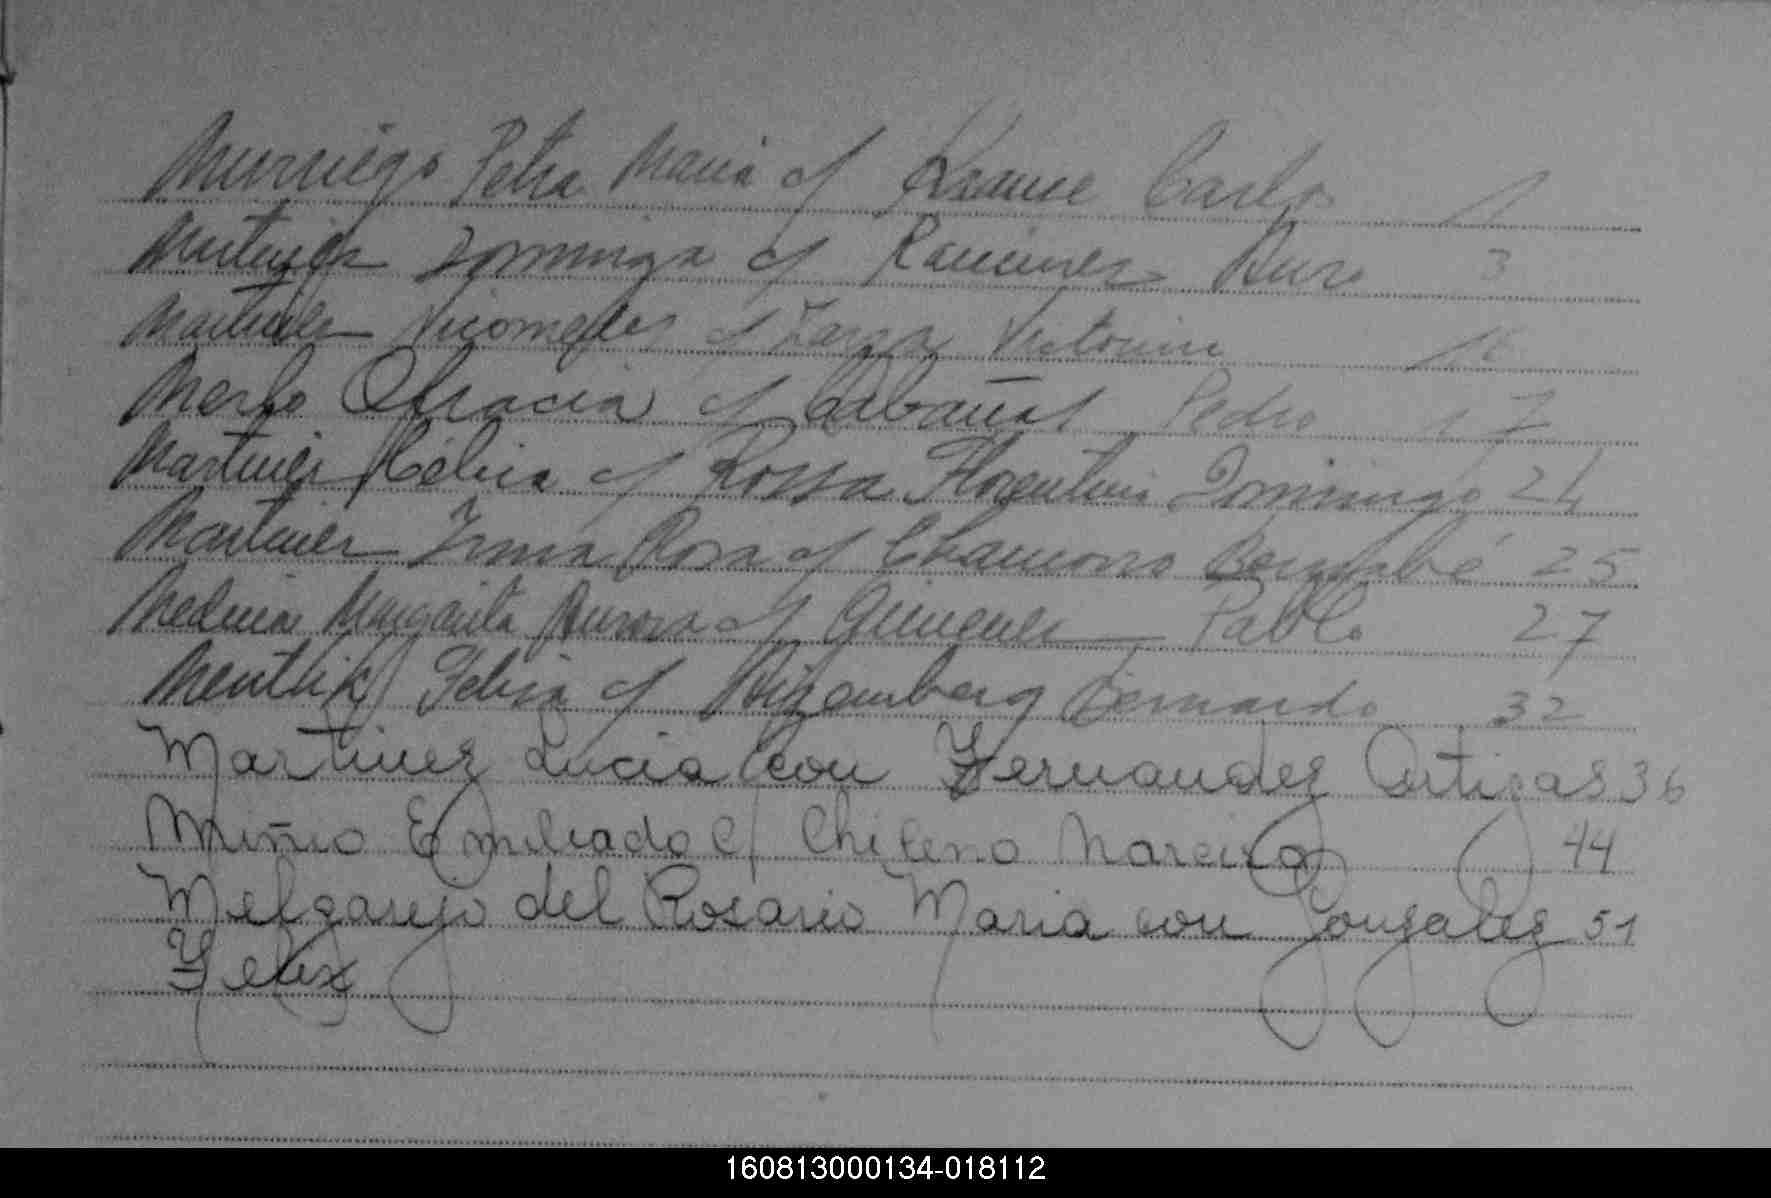 Murriego Petra Maria c/ Krause Carlos 1
Dominga c/ Ramirez 3
Martinez Nicomedes c/ Victorino 16
Merlo c/ Cabañas Pedro 17
Martinez Célia c/ Rossa Florentino Domingo 24
Martinez Irma Rosa c/ Chamorro Bernabé 25
Medina Margarita Aurora c/ Gimenez Pablo 27
Felisa c/ Bernardo 32
Martinez Lucia con Fernandez Ortizas 36
Miñio c/ Chileno Narcisa 44
Melgarejo del Rosario Maria con Gonzalez 51
Felix
160813000134-018112